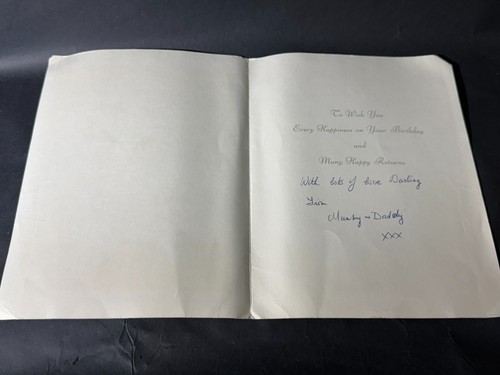 To Wish You
Every Happiness on Your Birthday
and
Many Happy Returns
With lots of love Darling
From
Mummy + Daddy
xxx